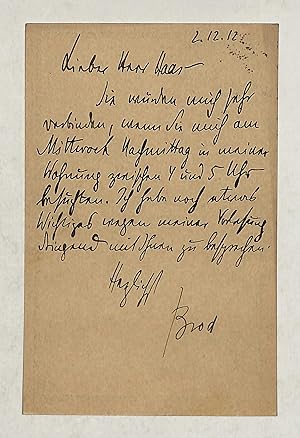 2.12.12
Lieber Herr Haas
Sie würden mich sehr
verbinden, wenn Sie mich am
Mittwoch Nachmittag in meiner
Wohnung zwischen 4 und 5 Uhr
besuchten. Ich habe noch etwas
Wichtiges wegen meiner Vorlesung
dringend mit Ihnen zu besprechen.
Herzlichst
Brod